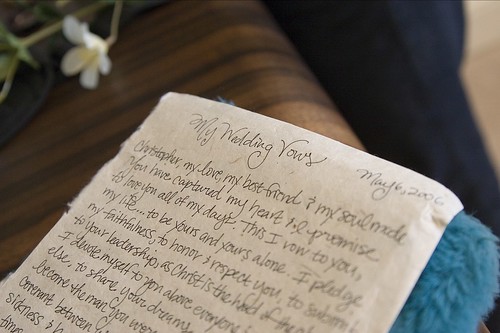 My Wedding Vows
May 6, 2006
Christopher, my love, my best friend & my soul made
You have captured my heart & I promise
to love you all of my days. This I vow to you,
my life... to be yours and yours alone. I pledge
my faithfulness, to honor & respect you, to submit
to your leadership, as Christ is the head of the
I devote myself to you above everyone
else to share your dreams
become the man you were
covenant between
sickness &